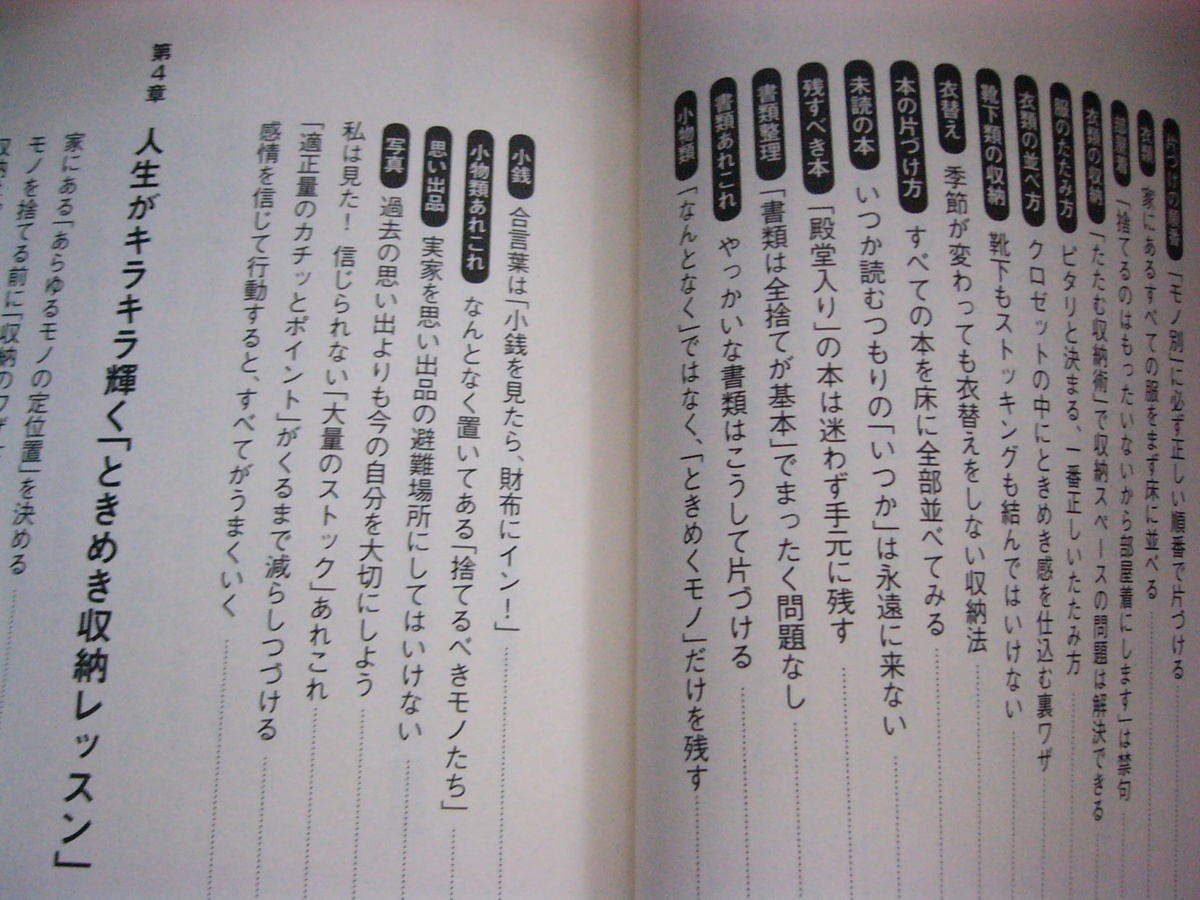 片づけの順番 「モノ別」に必ず正しい順番で片づける
衣類 家にあるすべての服をまず床に並べる
部屋着 「捨てるのはもったいないから部屋着にします」は禁句
衣類の収納 「たたむ収納術」で収納スペースの問題は解決できる
服のたたみ方 ピタリと決まる、一番正しいたたみ方
衣類の並べ方 クロゼットの中にときめき感を仕込む裏ワザ
靴下類の収納 靴下もストッキングも結んではいけない
衣替え 季節が変わっても衣替えをしない収納法
本の片づけ方 すべての本を床に全部並べてみる
未読の本 いつか読むつもりの「いつか」は永遠に来ない
残すべき本 「殿堂入り」の本は迷わず手元に残す
書類整理 「書類は全捨てが基本」でまったく問題なし
書類あれこれ やっかいな書類はこうして片づける
小物類 「なんとなく」ではなく、「ときめくモノ」だけを残す
小銭 合言葉は「小銭を見たら、財布にイン!」
小物類あれこれ なんとなく置いてある「捨てるべきモノたち」
思い出品 実家を思い出品の避難場所にしてはいけない
写真 過去の思い出よりも今の自分を大切にしよう
私は見た! 信じられない「大量のストック」あれこれ
「適正量のカチッとポイント」がくるまで減らしつづける
感情を信じて行動すると、すべてがうまくいく
第4章 人生がキラキラ輝く「ときめき収納レッスン」
家にある「あらゆるモノの定位置」を決める
モノを捨てる前に「収納のワザ